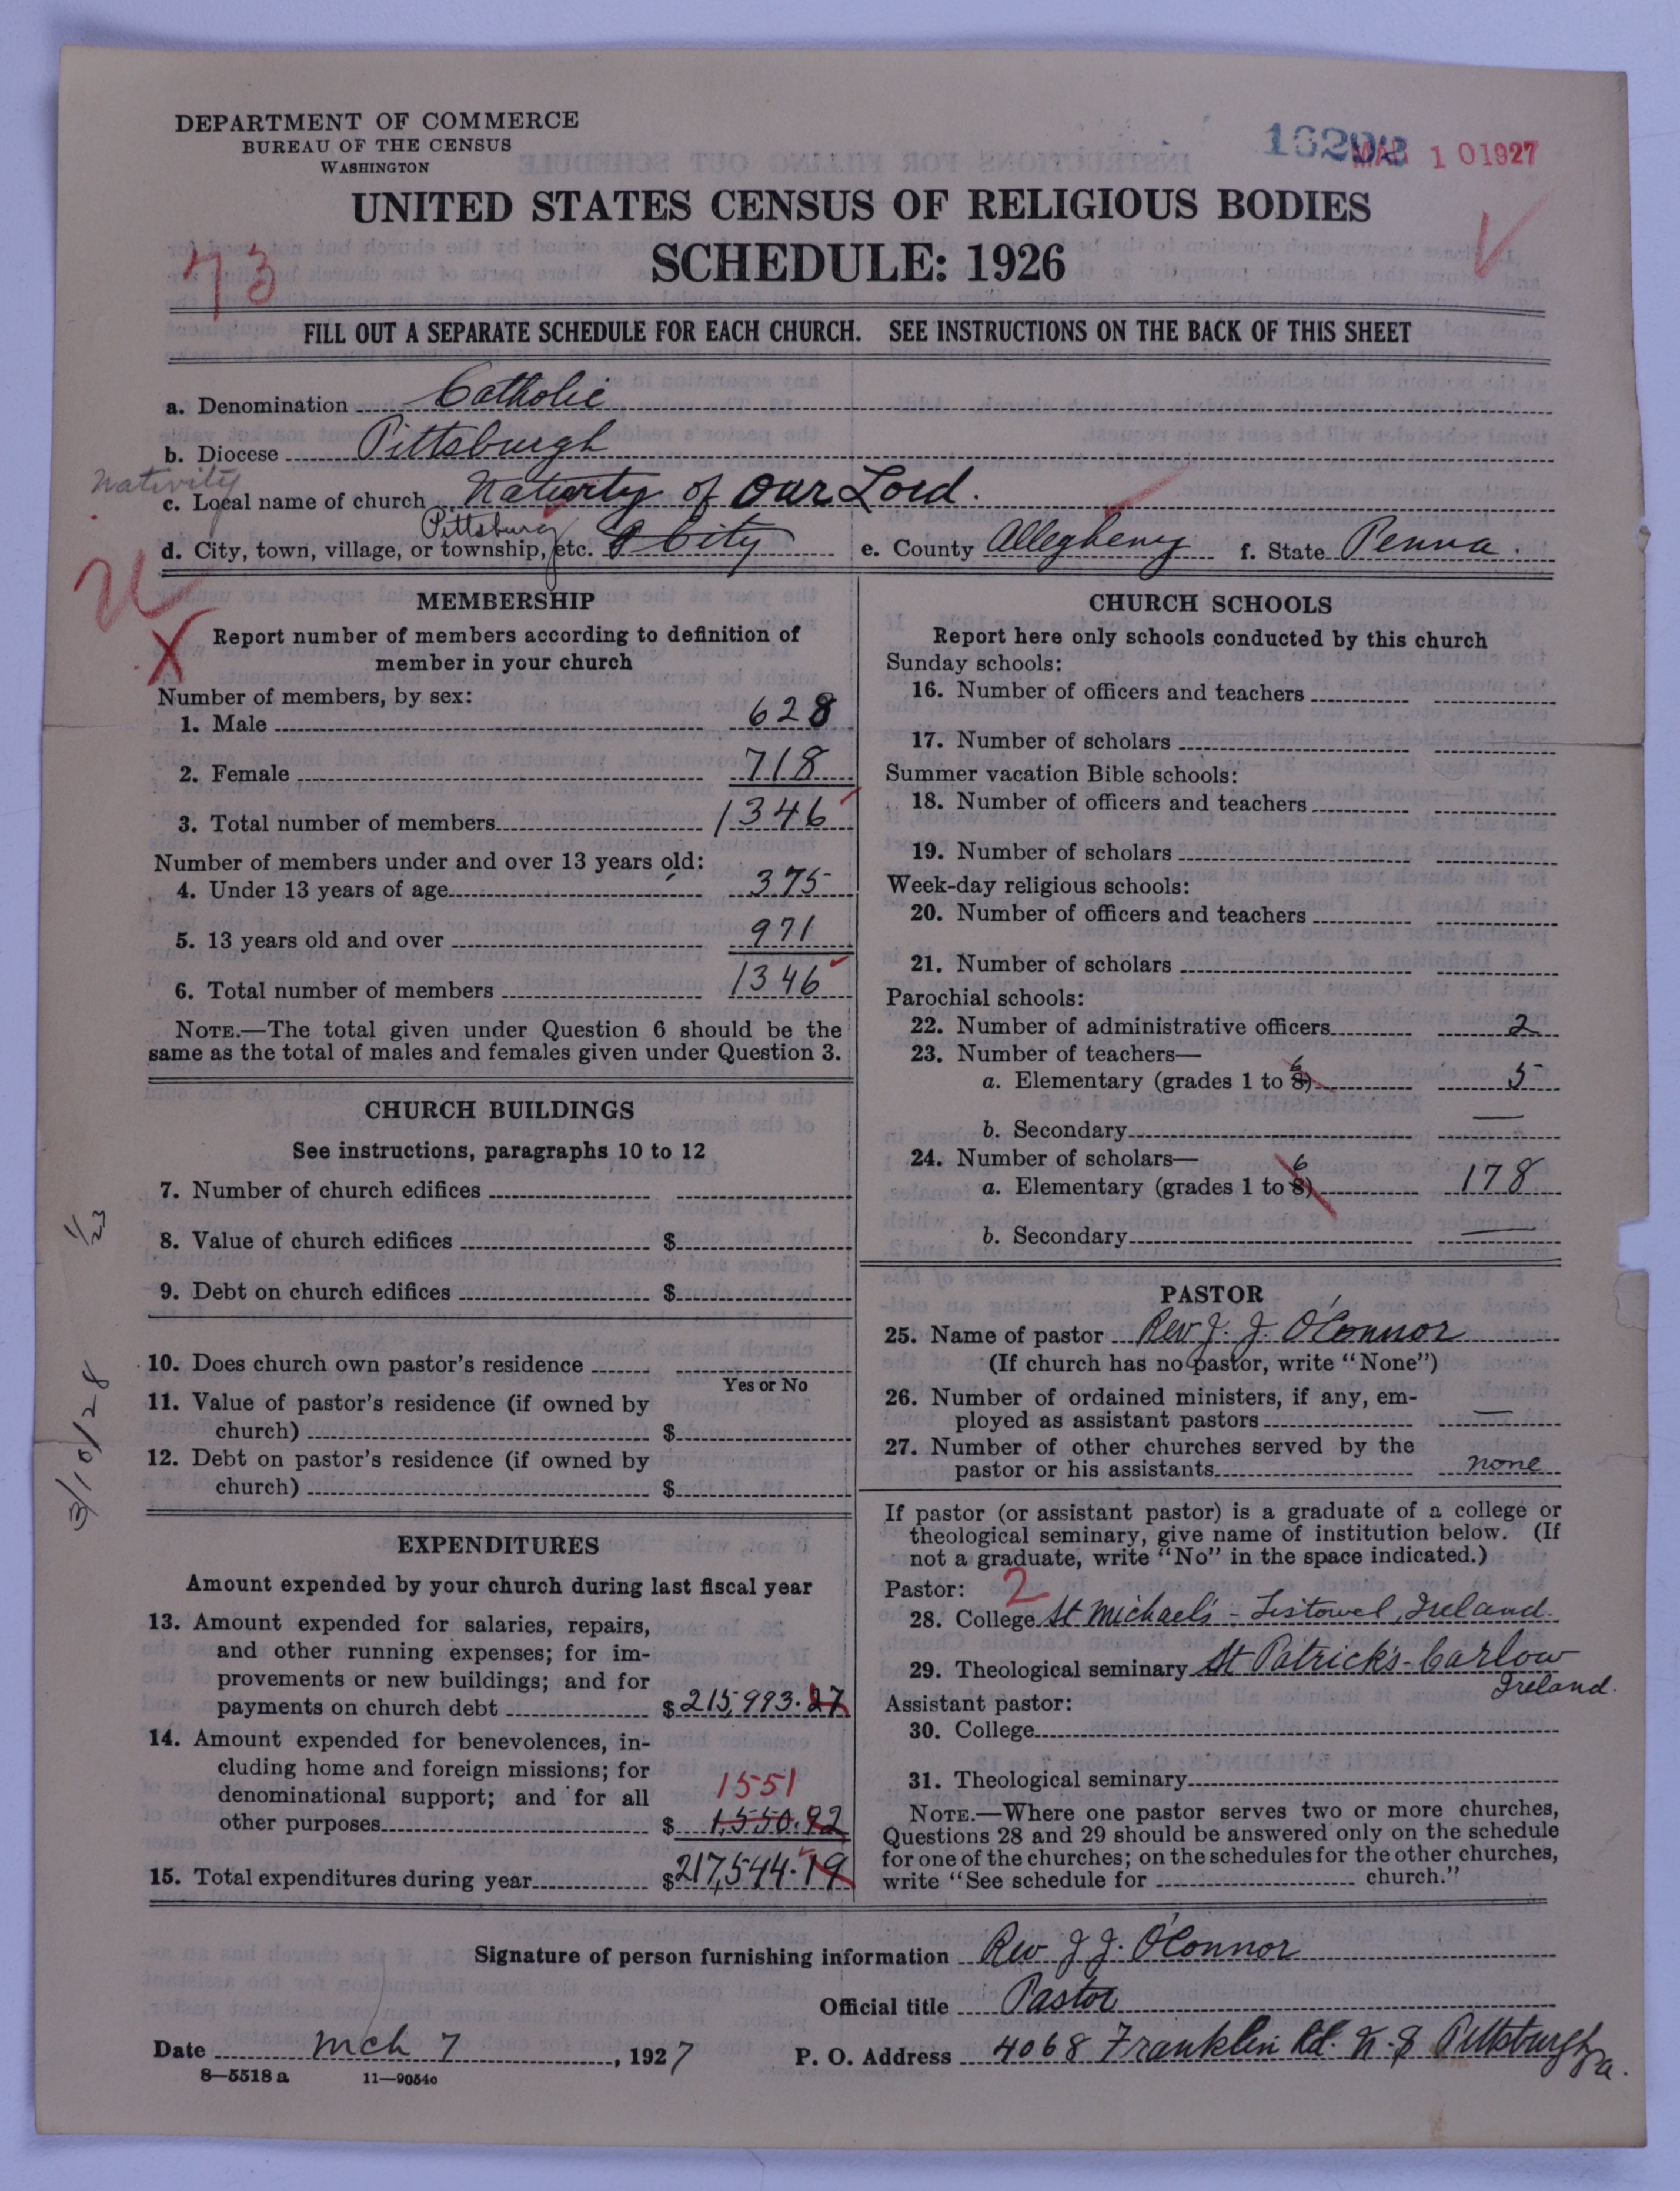 DEPARTMENT OF COMMERCE
BUREAU OF THE CENSUS
WASHINGTON
MAR 10 1927
UNITED STATES CENSUS OF RELIGIOUS BODIES
SCHEDULE: 1926
73
FILL OUT A SEPARATE SCHEDULE FOR EACH CHURCH. SEE INSTRUCTIONS ON THE BACK OF THIS SHEET
a. Denomination Catholic
b. Diocese Pittsburgh
Nativity
c. Local name of church Nativity of Our Lord.
Pittsburg
d. City, town, village, or township, etc. City e. County Allegheny f. State Penna.
MEMBERSHIP
Report number of members according to definition of
member in your church
Number of members, by sex:
1. Male 628
2. Female 718
3. Total number of members 1346
Number of members under and over 13 years old:
4. Under 13 years of age 375
5. 13 years old and over 971
6. Total number of members 1346
NOTE.—The total given under Question 6 should be the
same as the total of males and females given under Question 3.
CHURCH BUILDINGS
See instructions, paragraphs 10 to 12
7. Number of church edifices
8. Value of church edifices $
9. Debt on church edifices $
10. Does church own pastor's residence
Yes or No
11. Value of pastor's residence (if owned by
church) $
12. Debt on pastor's residence (if owned by
church) $
1/23
3/10/28
EXPENDITURES
Amount expended by your church during last fiscal year
13. Amount expended for salaries, repairs,
and other running expenses; for im-
provements or new buildings; and for
payments on church debt $215,993.27
14. Amount expended for benevolences, in-
cluding home and foreign missions; for
denominational support; and for all 1551
other purposes $ 1,550.92
15. Total expenditures during year $217,544.19
CHURCH SCHOOLS
Report here only schools conducted by this church
Sunday schools:
16. Number of officers and teachers
17. Number of scholars
Summer vacation Bible schools:
18. Number of officers and teachers
19. Number of scholars
Week-day religious schools:
20. Number of officers and teachers
21. Number of scholars
Parochial schools:
22. Number of administrative officers 2
23. Number of teachers—
6
a. Elementary (grades 1 to 8) 5
b. Secondary —
24. Number of scholars—
6
a. Elementary (grades 1 to 8) 178
b. Secondary —
PASTOR
25. Name of pastor Rev J. J. O'Connor
(If church has no pastor, write "None")
26. Number of ordained ministers, if any, em-
ployed as assistant pastors —
27. Number of other churches served by the
pastor or his assistants none
If pastor (or assistant pastor) is a graduate of a college or
theological seminary, give name of institution below. (If
not a graduate, write "No" in the space indicated.)
Pastor: 2
28. College St Michael's - Listowel, Ireland.
29. Theological seminary St Patrick's - Carlow
Ireland.
Assistant pastor:
30. College
31. Theological seminary
NOTE.—Where one pastor serves two or more churches,
Questions 28 and 29 should be answered only on the schedule
for one of the churches; on the schedules for the other churches,
write "See schedule for church."
Signature of person furnishing information Rev J J. O'Connor
Official title Pastor
Date Mch 7, 1927 P. O. Address 4068 Franklin Rd. N. S Pittsburgh Pa.
8—5518 a 11—9054c